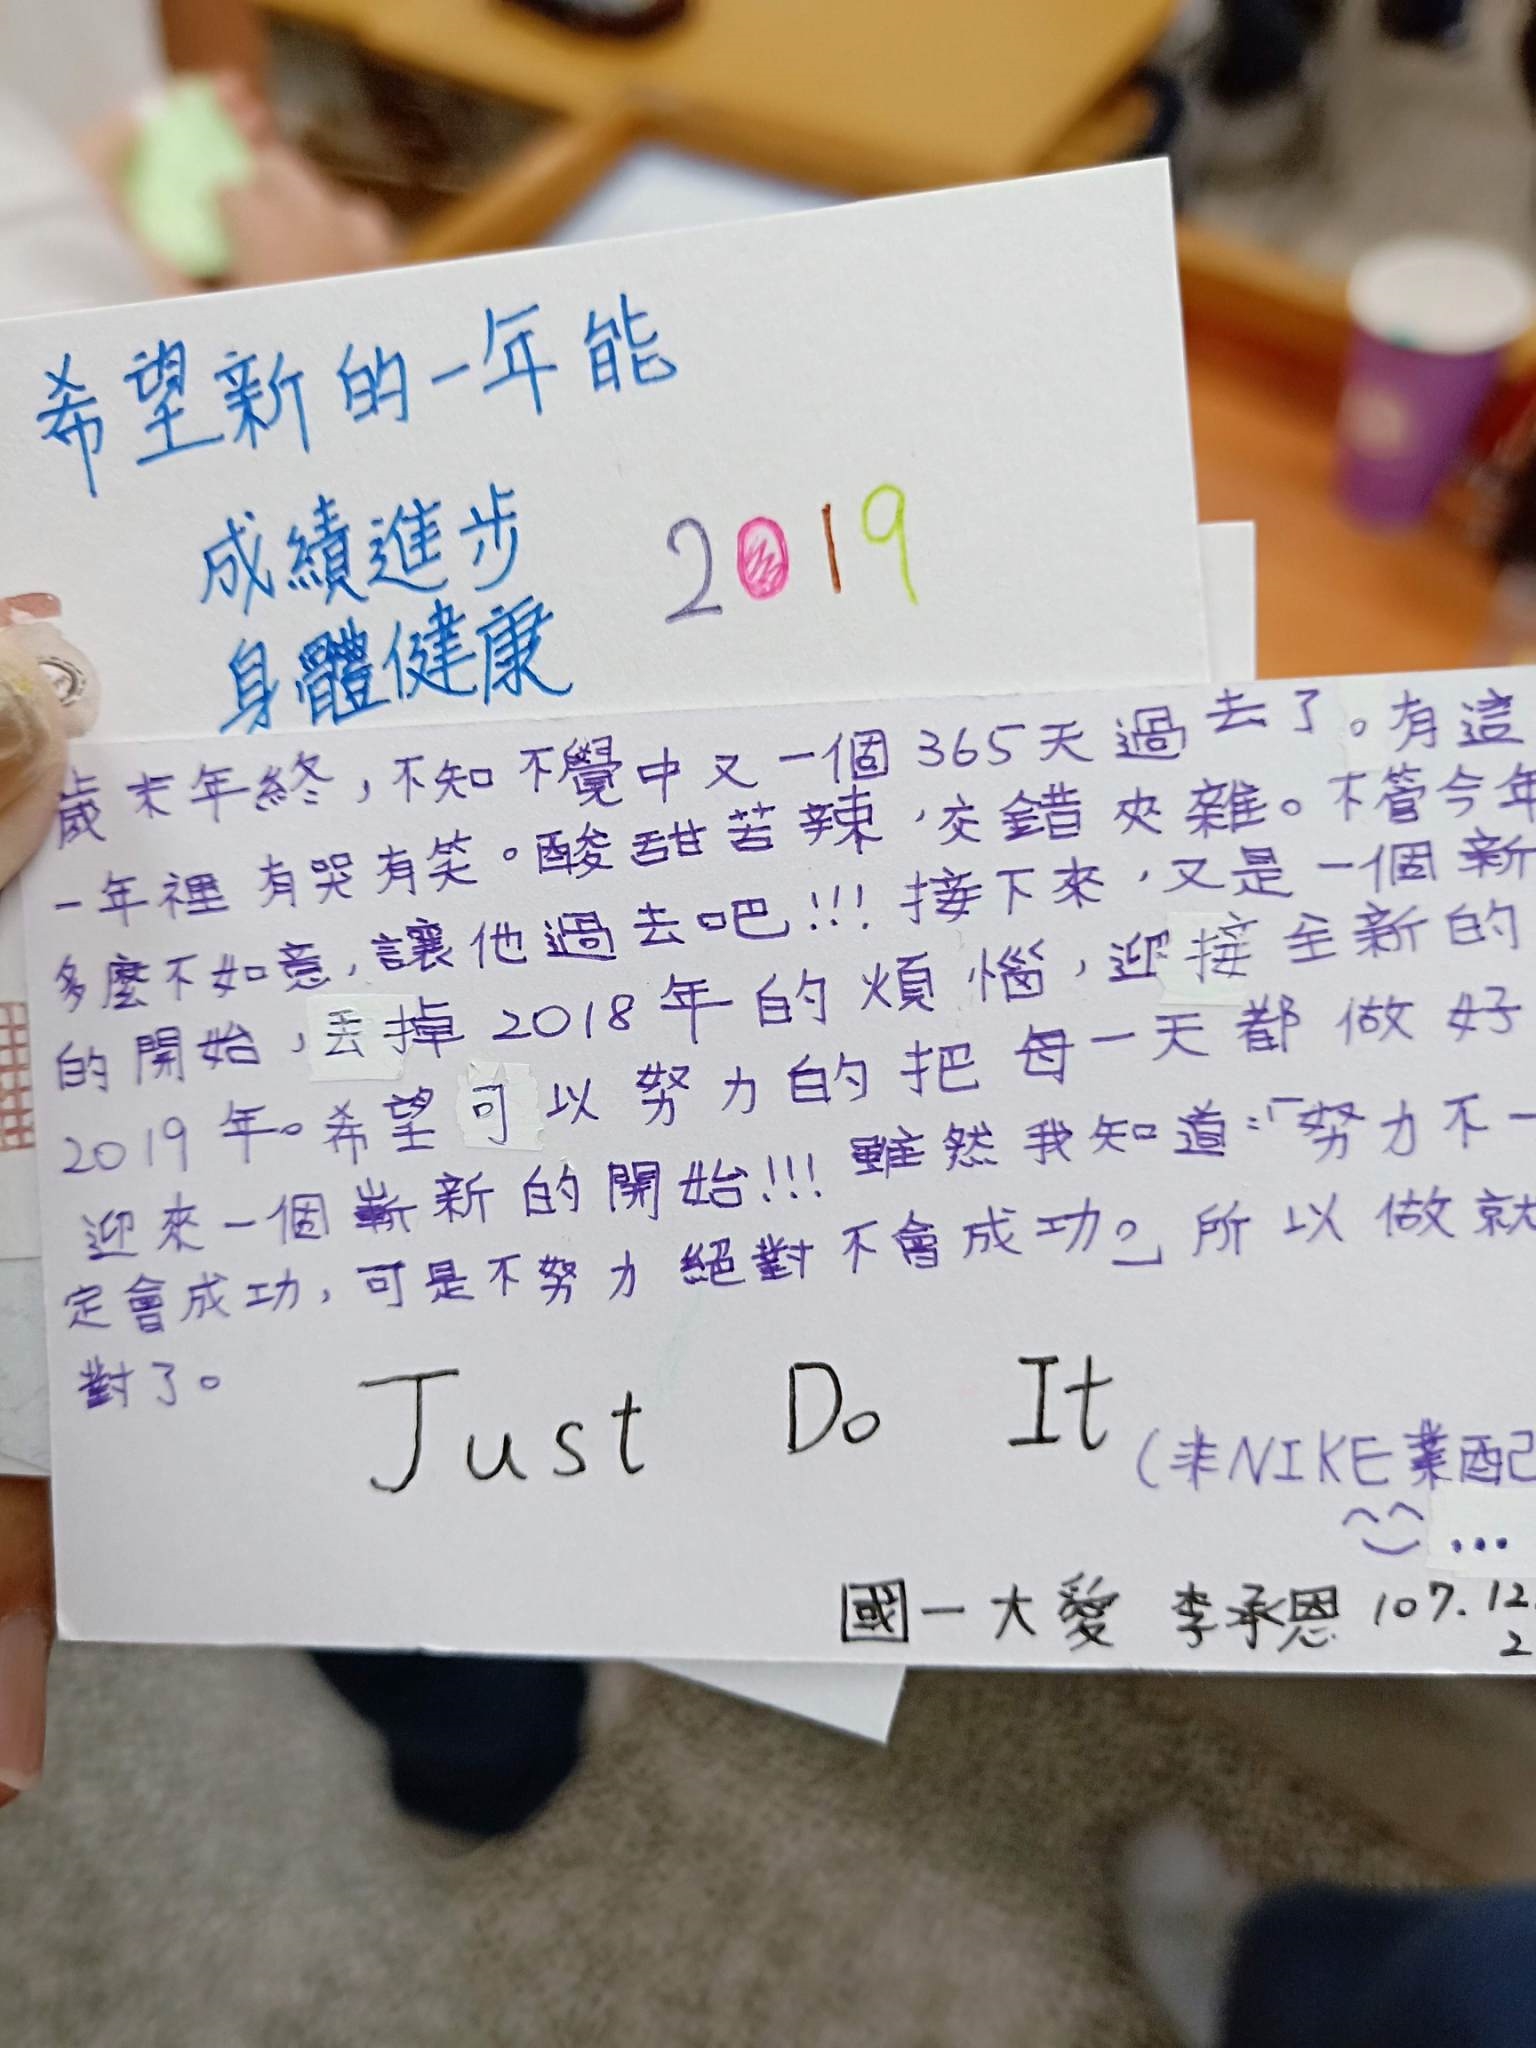 希望新的一年能
成績進步
身體健康
2019
歲末年終，不知不覺中又一個365天過去了。有這
一年裡有哭有笑。酸甜苦辣，交錯夾雜。不管今年
多麼不如意，讓他過去吧!!!接下來，又是一個新
的開始，丟掉2018年的煩惱，迎接全新的
2019年。希望可以努力的把每一天都做好
迎來一個嶄新的開始!!!雖然我知道：「努力不一
定會成功，可是不努力絕對不會成功。」所以做就
對了。
Just Do It
(非NIKE業配
...
國一大愛 李承恩 107.12.
2